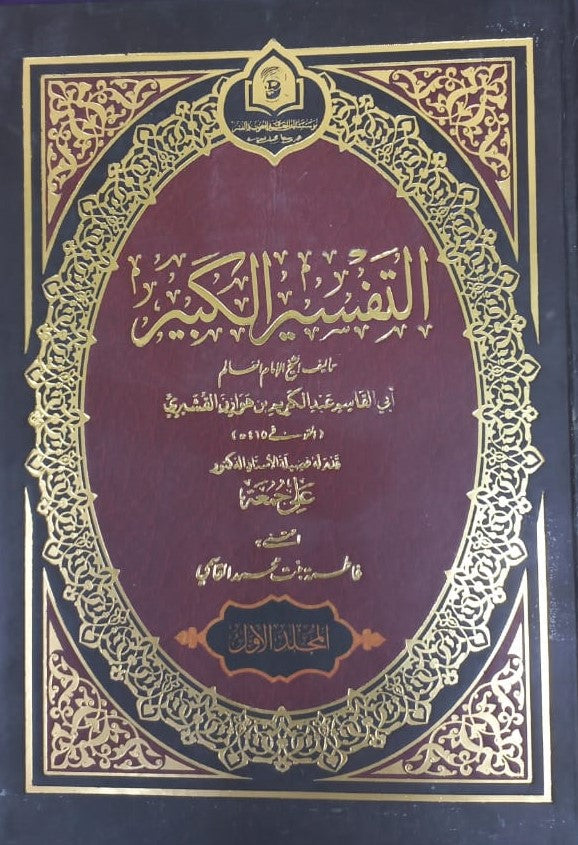 التَفْسِير الكَبِير
تأليف الشيخ الإمام العالم
أبي القاسم عبد الكريم بن هوازن القشيري
(المتوفى ٤٦٥ه)
قدم له فضيلة الأستاذ الدكتور
علي جمعة
اعتنى به
فاطمة بنت محمد القاسمي
المجلد الأول